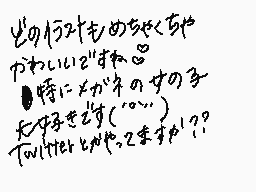 どのイラストもめちゃくちゃ
かわいいですね♡
特にメガネの女の子
大好きです(´°`)
Twitterとかやってますか!??